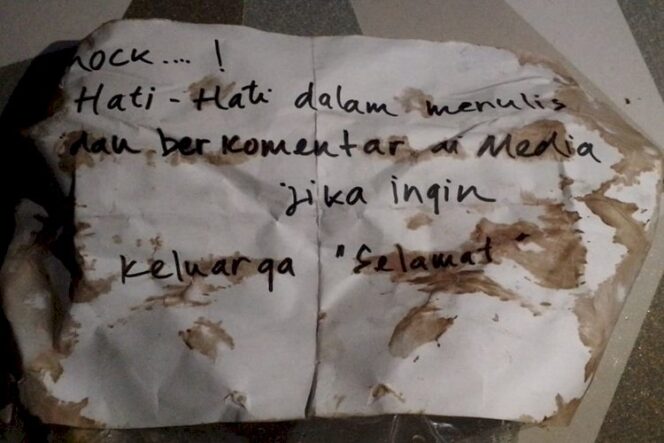 ock.... !
Hati - Hati dalam menulis
dan berkomentar di Media
jika ingin
keluarga "Selamat"